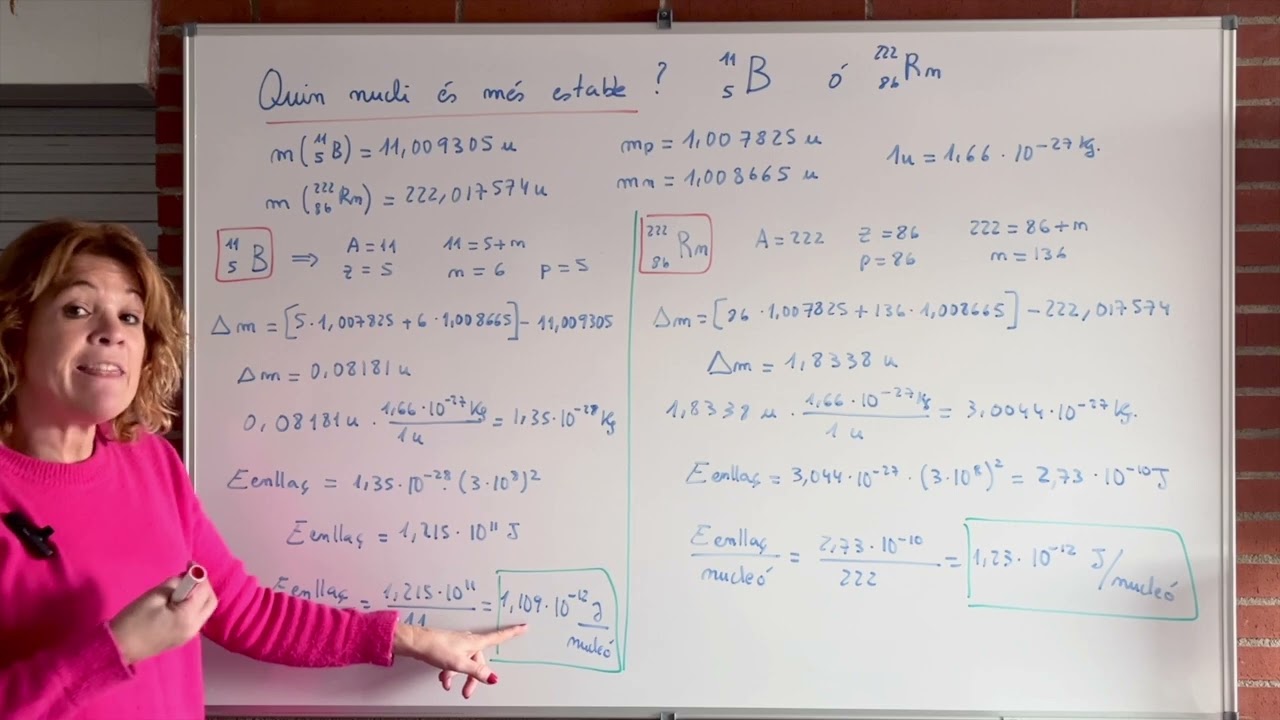 Quin nucli és més estable ? ¹¹₅B ó ²²²₈₆Rn
m(¹¹₅B) = 11,009305 u
m(²²²₈₆Rn) = 222,017574 u
mp = 1,007825 u
mn = 1,008665 u
1u = 1,66 · 10⁻²⁷ kg.
¹¹₅B ⇒ A = 11 11 = 5 + n
z = 5 n = 6 p = 5
Δm = [5 · 1,007825 + 6 · 1,008665] - 11,009305
Δm = 0,08181 u
0,08181 u · 1,66 · 10⁻²⁷ Kg / 1u = 1,35 · 10⁻²⁸ Kg
Eenllaç = 1,35 · 10⁻²⁸ · (3 · 10⁸)²
Eenllaç = 1,215 · 10¹¹ J
Eenllaç = 1,215 · 10¹¹ / 11 = 1,109 · 10⁻¹² J / nucleó
²²²₈₆Rn A = 222 z = 86 222 = 86 + n
p = 86 n = 136
Δm = [86 · 1,007825 + 136 · 1,008665] - 222,017574
Δm = 1,8338 u
1,8338 u · 1,66 · 10⁻²⁷ kg / 1u = 3,0044 · 10⁻²⁷ Kg.
Eenllaç = 3,044 · 10⁻²⁷ · (3 · 10⁸)² = 2,73 · 10⁻¹⁰ J
Eenllaç / nucleó = 2,73 · 10⁻¹⁰ / 222 = 1,23 · 10⁻¹² J/nucleó